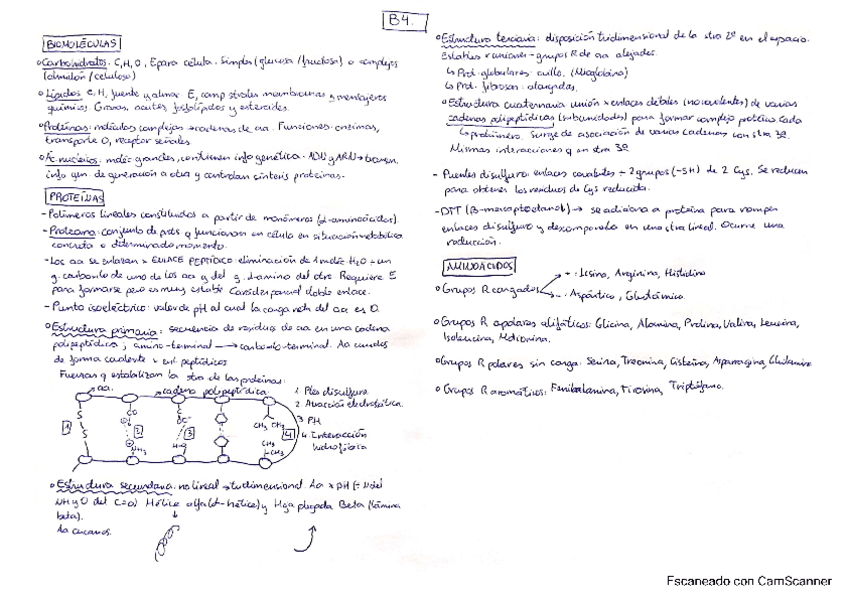 B4.
BIOMOLÉCULAS
Carbohidratos. C, H, O, E para célula. Simples (glucosa / fructosa) o complejos
(almidón / celulosa)
Lípidos C, H, fuente y almac E, comp strales membranas y mensajeros
químicos. Grasas, aceites, fosfolípidos y esteroides.
Proteínas: moléculas complejas → cadenas de aa. Funciones: enzimas,
transporte O, receptor señales
Ác. nucleicos: moléc grandes, contienen info genética. ADN y ARN → transm.
info gen. de generación a otra y controlan síntesis proteínas.
PROTEÍNAS
- Polímeros lineales constituidos a partir de monómeros (α-aminoácidos).
- Proteoma: conjunto de prots q funcionan en célula en situación metabólica
concreta o determinado momento.
- Los aa se enlazan x ENLACE PEPTÍDICO: eliminación de 1 moléc. H2O + un
g. carboxilo de uno de los aa y del g. amino del otro. Requiere E
para formarse pero es muy estable. Carácter parcial doble enlace.
- Punto isoeléctrico: valor de pH al cual la carga neta del aa es 0.
Estructura primaria: secuencia de residuos de aa en una cadena
polipeptídica; amino-terminal → carboxilo-terminal. Aa unidos
de forma covalente x enl. peptídicos
Fuerzas q estabilizan la stra de las proteínas:
aa. cadena polipeptídica.
1. Ptes disulfuro
2. Atracción electrostática.
3 PH
4. Interacción
hidrofóbica
S
S
1
CO
NH3
2
3
CH3 CH3
CH3
CH3
4
Estructura secundaria: no lineal → tridimensional. Aa x PH (= H del
NH y O del C=O) Hélice alfa (α-hélice) y Hoja plegada Beta (lámina
beta).
Aa cercanos.
Estructura terciaria: disposición tridimensional de la stra 2ª en el espacio.
Estables x uniones - grupos R de aa alejados.
↳ Prot. globulares: ovillo. (Mioglobina)
↳ Prot. fibrosas: alargadas.
Estructura cuaternaria unión x enlaces débiles (no covalentes) de varias
cadenas polipeptídicas (subunidades) para formar complejo proteico. Cada
↳ protómero. Surge de asociación de varias cadenas con stra 3ª.
Mismas interacciones q en stra 3ª
- Puentes disulfuro: enlaces covalentes ÷ 2 grupos (-SH) de 2 Cys. Se reducen
para obtener los residuos de Cys reducida.
- DTT (β-mercaptoetanol) → se adiciona a proteína para romper
enlaces disulfuro y descomponerla en una stra lineal. Ocurre una
reducción.
AMINOÁCIDOS
Grupos R cargados + : Lisina, Arginina, Histidina
- : Aspártico, Glutámico.
Grupos R apolares alifáticos: Glicina, Alanina, Prolina, Valina, Leucina,
Isoleucina, Metionina.
Grupos R polares sin carga: Serina, Treonina, Cisteína, Asparagina, Glutamina
Grupos R aromáticos: Fenilalanina, Tirosina, Triptófano.
Escaneado con CamScanner